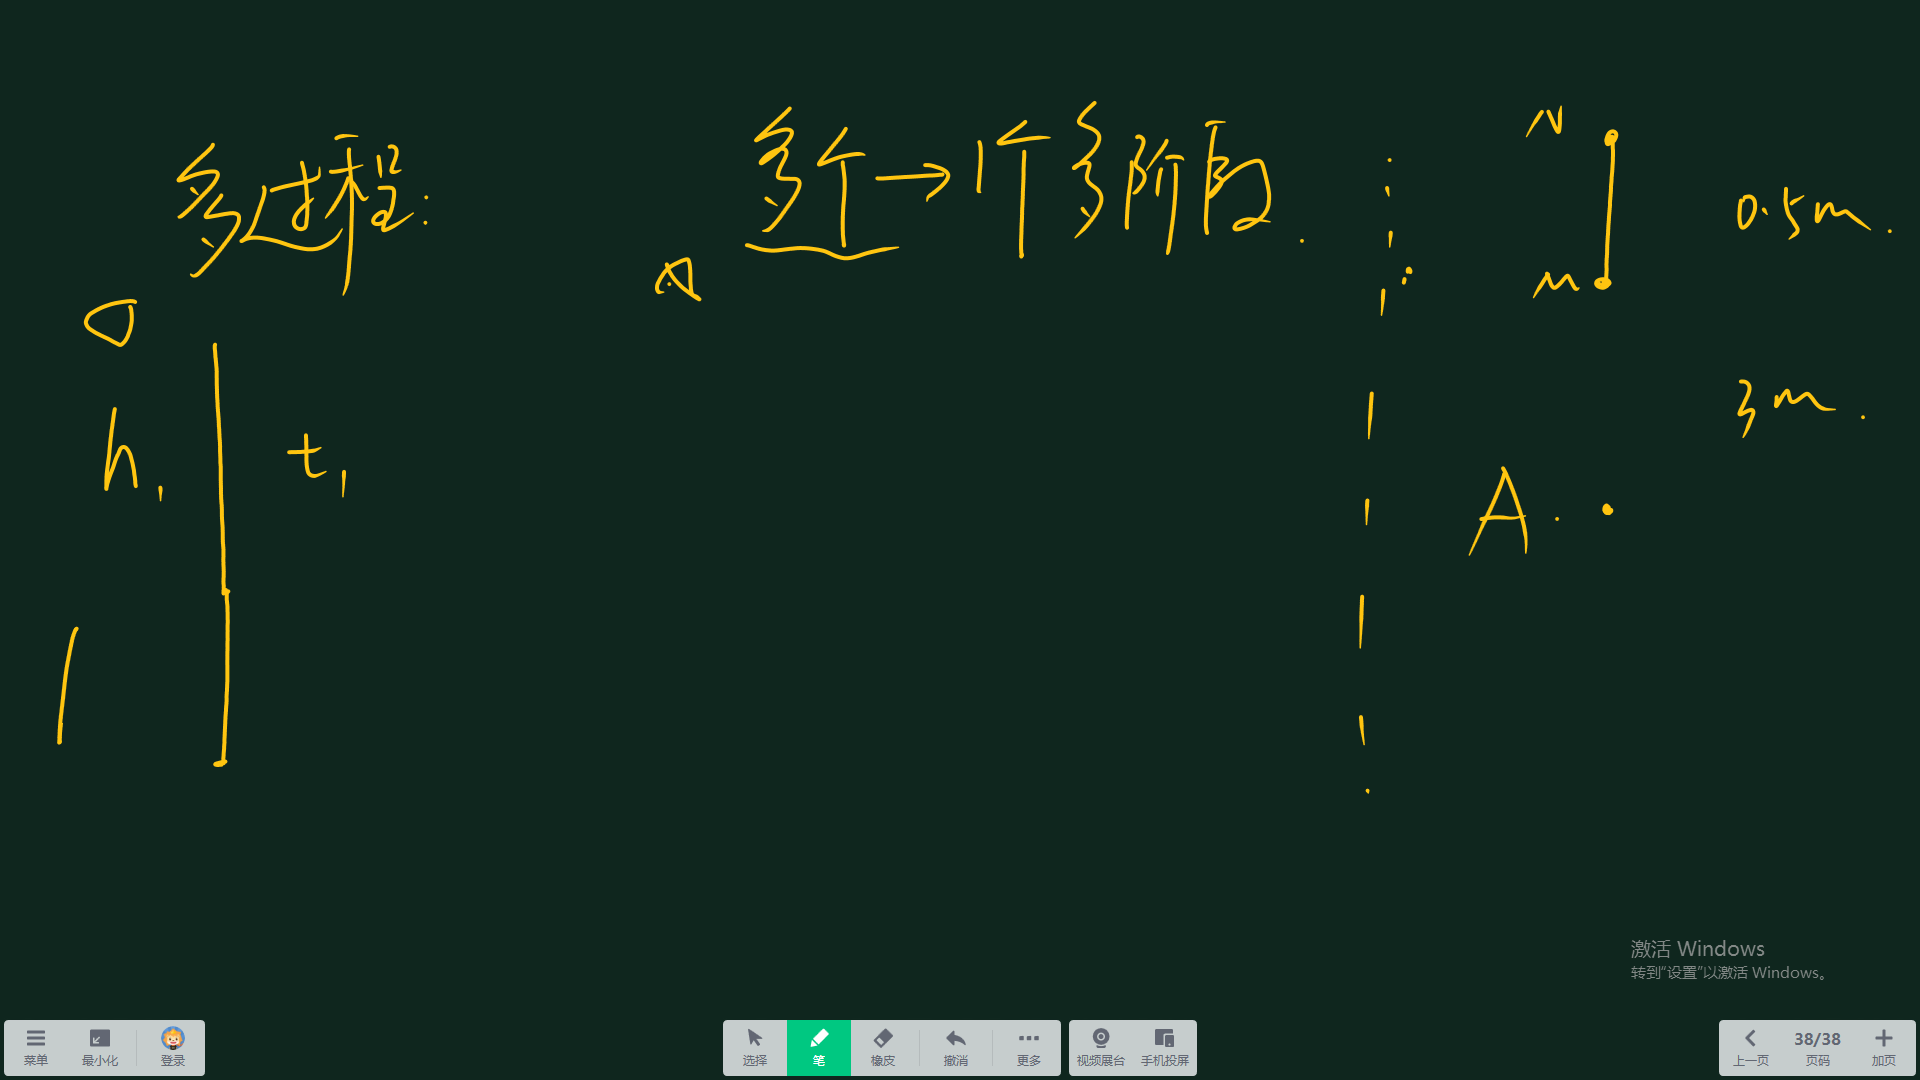 多过程:
多个→1个多阶段.
h1
t1
N
M
0.5m.
3m.
A.
激活 Windows
转到“设置”以激活 Windows。
菜单
最小化
登录
选择
笔
橡皮
撤消
更多
视频展台
手机投屏
上一页
38/38
页码
加页